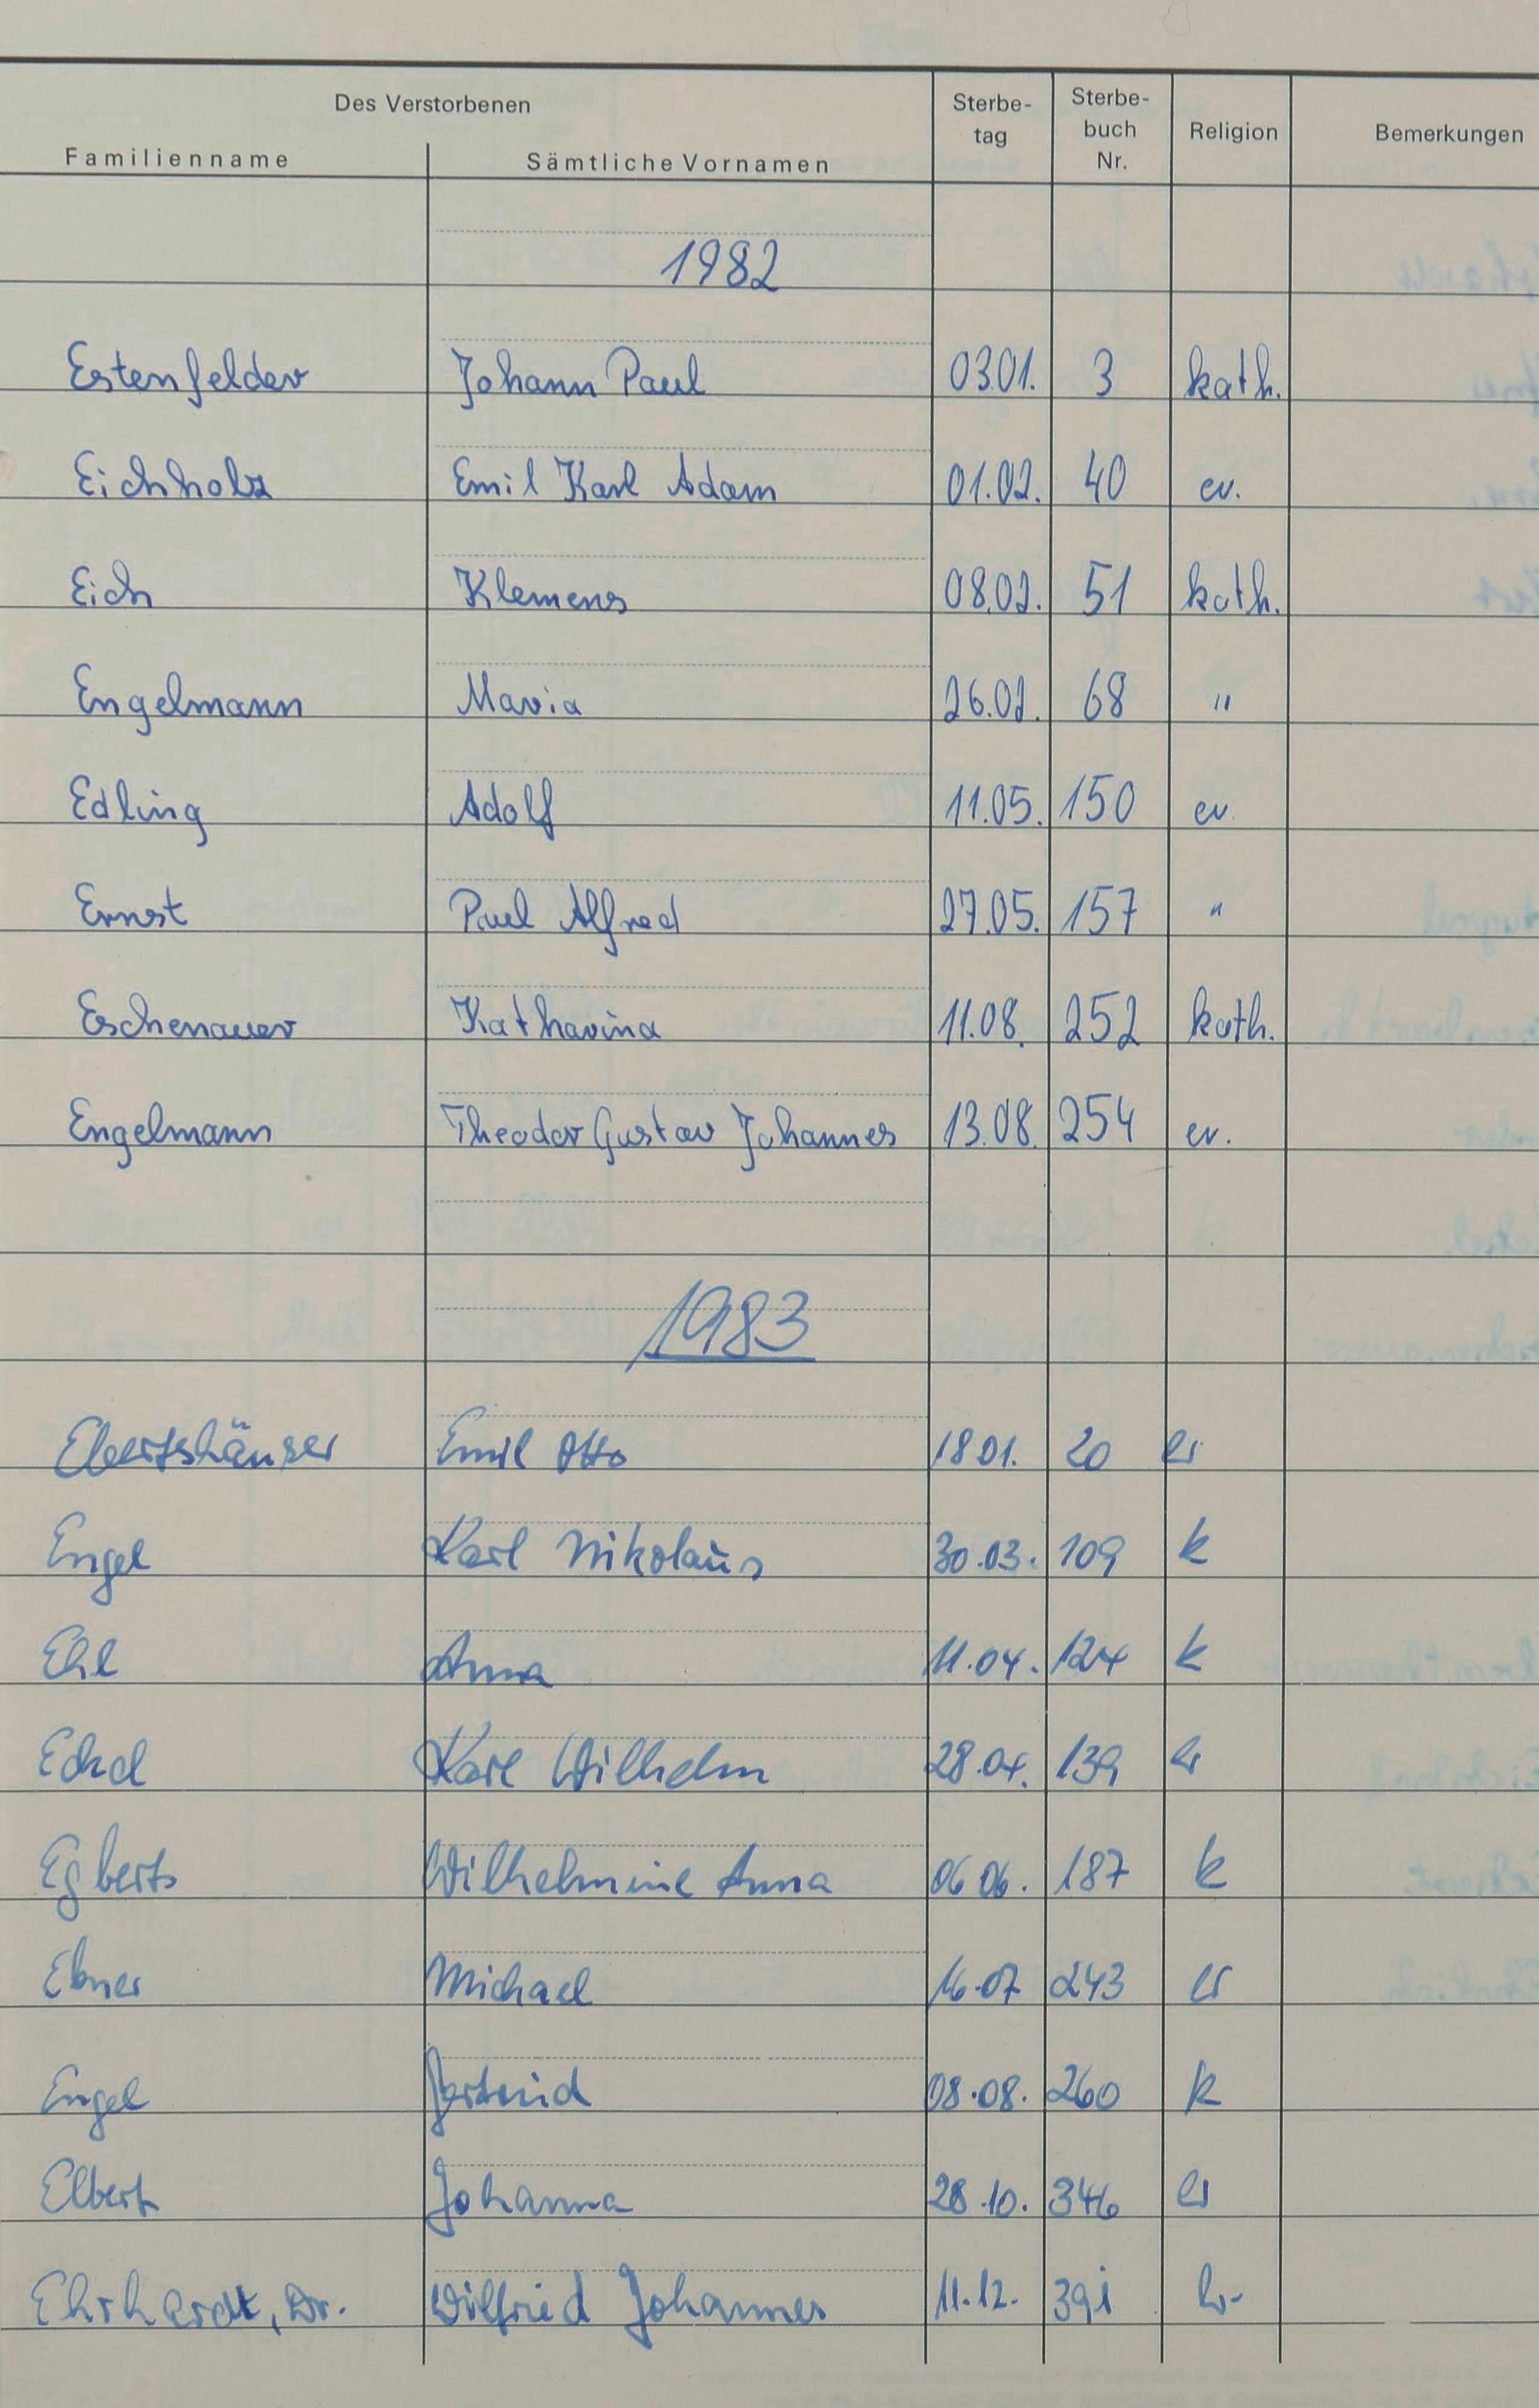 Des Verstorbenen
Familienname Sämtliche Vornamen Sterbe-tag Sterbe-buch Nr. Religion Bemerkungen
1982
Estenfelder Johann Paul 03.01. 3 kath.
Eichholz Emil Karl Adam 01.02. 40 ev.
Eich Klemens 08.02. 51 kath.
Engelmann Maria 26.02. 68 "
Edling Adolf 11.05. 150 ev.
Ernst Paul Alfred 27.05. 157 "
Eschenauer Katharina 11.08. 252 kath.
Engelmann Theodor Gustav Johannes 13.08. 254 ev.
1983
Ebertshäuser Emil Otto 18 01. 20 ev
Engel Karl Nikolaus 30.03. 109 k
Ehl Anna 11.04. 124 k
Eckel Karl Wilhelm 28.04. 139 ev
Egberts Wilhelmine Anna 06 06. 187 k
Ebner Michael 16.07 243 ev
Engel Gertrud 08.08. 260 k
Elbert Johanna 28.10. 346 ev
Ehrhardt, Dr. Wilfried Johannes 11.12. 391